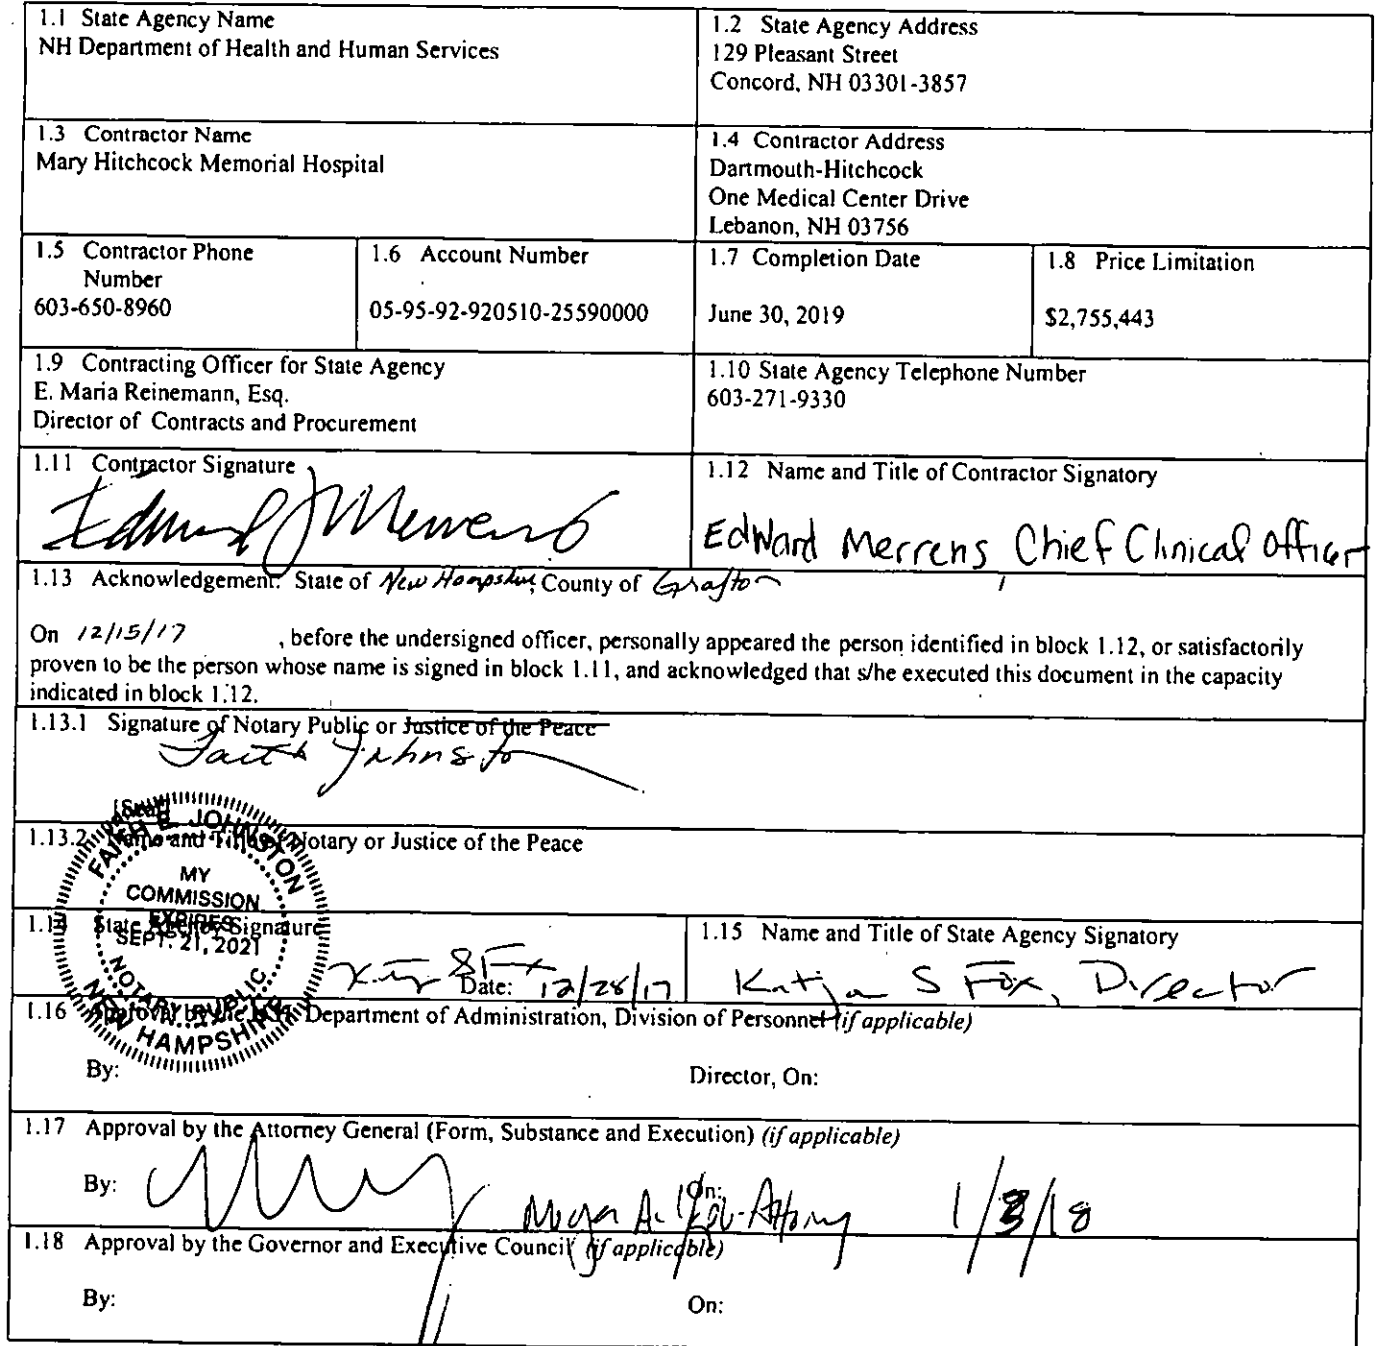 1.1 State Agency Name
NH Department of Health and Human Services
1.2 State Agency Address
129 Pleasant Street
Concord, NH 03301-3857
1.3 Contractor Name
Mary Hitchcock Memorial Hospital
1.4 Contractor Address
Dartmouth-Hitchcock
One Medical Center Drive
Lebanon, NH 03756
1.5 Contractor Phone
Number
603-650-8960
1.6 Account Number
05-95-92-920510-25590000
1.7 Completion Date
June 30, 2019
1.8 Price Limitation
$2,755,443
1.9 Contracting Officer for State Agency
E. Maria Reinemann, Esq.
Director of Contracts and Procurement
1.10 State Agency Telephone Number
603-271-9330
1.11 Contractor Signature
Edward J Merrens
1.12 Name and Title of Contractor Signatory
Edward Merrens Chief Clinical Officer
1.13 Acknowledgement: State of New Hampshire, County of Grafton
On 12/15/17 , before the undersigned officer, personally appeared the person identified in block 1.12, or satisfactorily
proven to be the person whose name is signed in block 1.11, and acknowledged that s/he executed this document in the capacity
indicated in block 1.12.
1.13.1 Signature of Notary Public or Justice of the Peace
Faith Johnston
[Seal]
1.13.2 Name and Title of Notary or Justice of the Peace
FAITH E. JOHNSTON
MY
COMMISSION
EXPIRES
SEPT. 21, 2021
NOTARY PUBLIC
NEW HAMPSHIRE
1.14 State Agency Signature
Date: 12/28/17
1.15 Name and Title of State Agency Signatory
Katja S Fox, Director
1.16 Approval by the NH Department of Administration, Division of Personnel (if applicable)
By:
Director, On:
1.17 Approval by the Attorney General (Form, Substance and Execution) (if applicable)
By:
On:
1/3/18
1.18 Approval by the Governor and Executive Council (if applicable)
By:
On: